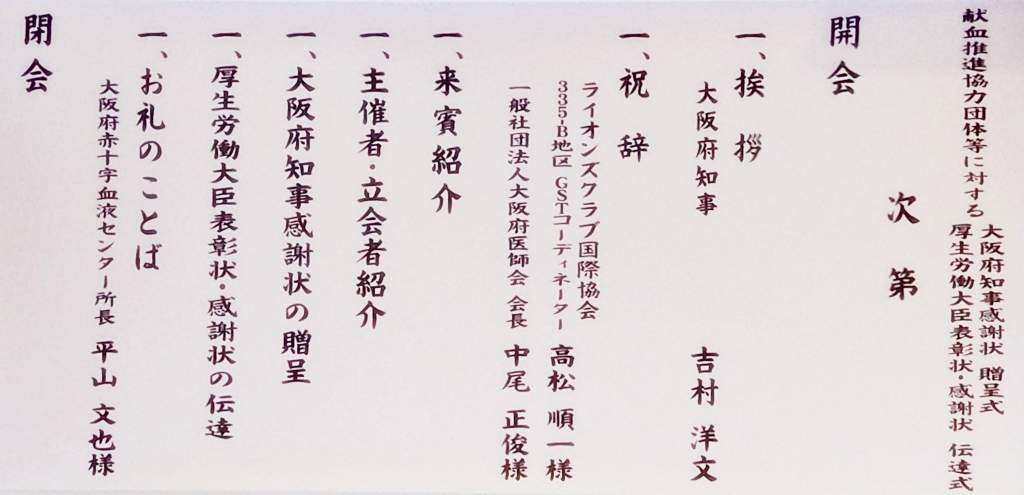 献血推進協力団体等に対する
大阪府知事感謝状 贈呈式
厚生労働大臣表彰状・感謝状 伝達式
次第
開会
一、挨拶
大阪府知事 吉村 洋文
一、祝辞
ライオンズクラブ国際協会
335-B地区 GSTコーディネーター 高松 順一様
一般社団法人大阪府医師会 会長 中尾 正俊様
一、来賓紹介
一、主催者・立会者紹介
一、大阪府知事感謝状の贈呈
一、厚生労働大臣表彰状・感謝状の伝達
一、お礼のことば
大阪府赤十字血液センター所長 平山 文也様
閉会